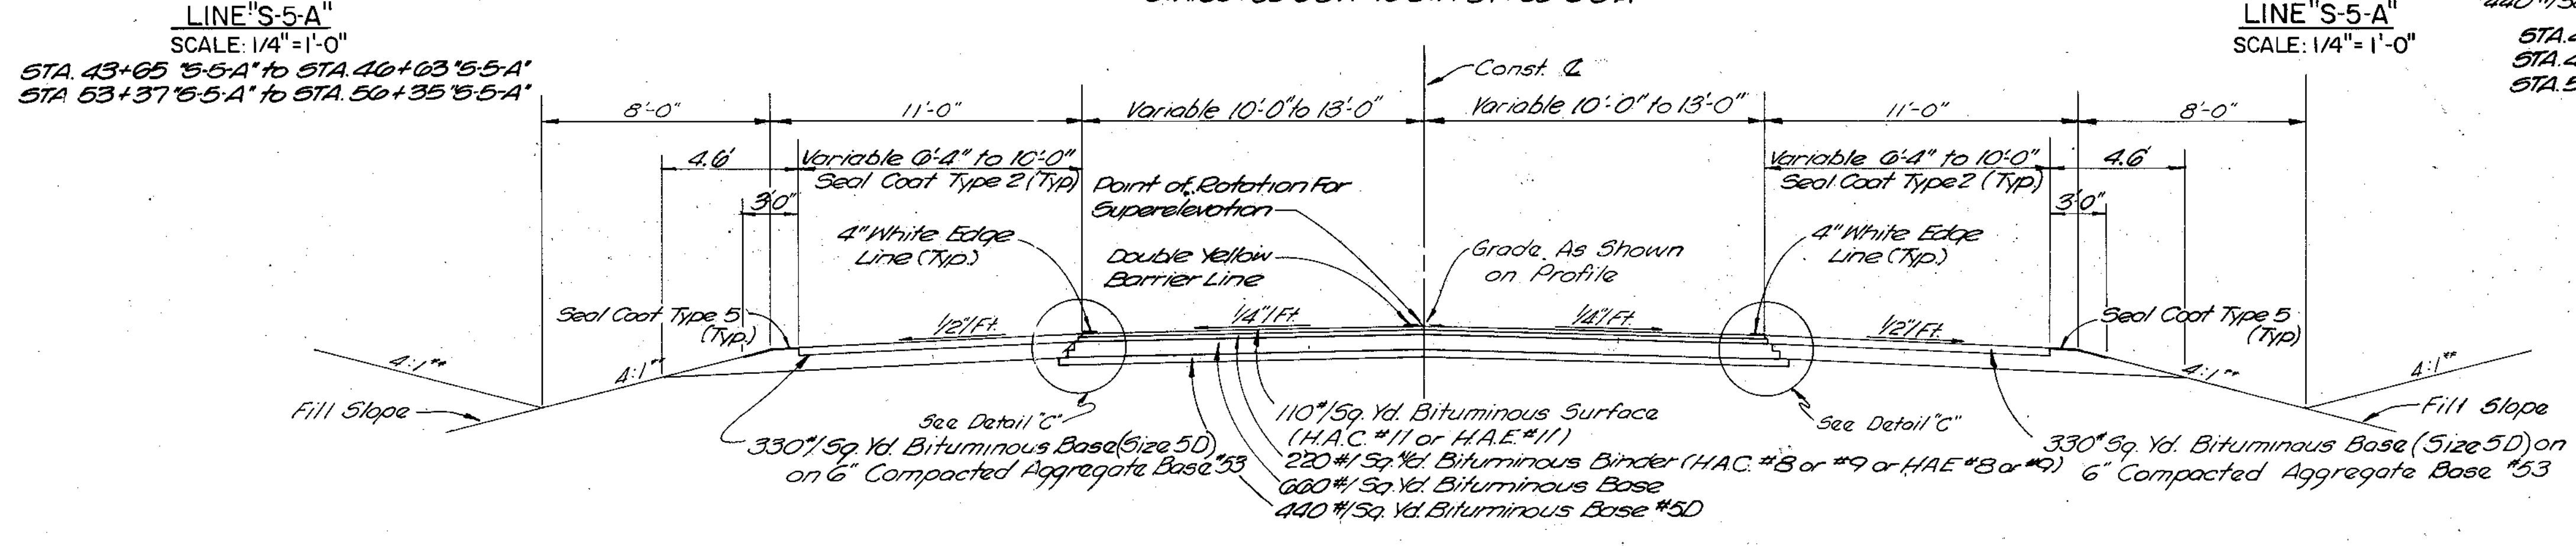 LINE "S-5-A"
SCALE: 1/4" = 1'-0"
STA. 43+65 "S-5-A" to STA. 46+63 "S-5-A"
STA 53+37 "S-5-A" to STA. 56+35 "S-5-A"
LINE "S-5-A"
SCALE: 1/4" = 1'-0"
STA.
STA.
STA.
Const. ℄
8'-0"
11'-0"
Variable 10'-0" to 13'-0"
Variable 10'-0" to 13'-0"
11'-0"
8'-0"
4.6'
Variable 6'-4" to 10'-0"
Seal Coat Type 2 (Typ)
Point of Rotation For
Superelevation
Variable 6'-4" to 10'-0"
Seal Coat Type 2 (Typ.)
4.6'
3'0"
3'0"
4" White Edge
Line (Typ.)
Double Yellow
Barrier Line
Grade As Shown
on Profile
4" White Edge
Line (Typ.)
Seal Coat Type 5
(Typ.)
1/2"/Ft.
1/4"/Ft.
1/4"/Ft.
1/2"/Ft.
Seal Coat Type 5
(Typ)
4:1**
4:1**
4:1**
4:1**
Fill Slope
Fill Slope
See Detail "C"
See Detail "C"
330#/Sq. Yd. Bituminous Base (Size 5D)
on 6" Compacted Aggregate Base #53
110#/Sq. Yd. Bituminous Surface
(H.A.C. #11 or H.A.E. #11)
220#/Sq. Yd. Bituminous Binder (HAC. #8 or #9 or HAE #8 or #9)
660#/Sq. Yd. Bituminous Base
440#/Sq. Yd. Bituminous Base #5D
330# Sq. Yd. Bituminous Base (Size 5D) on
6" Compacted Aggregate Base #53